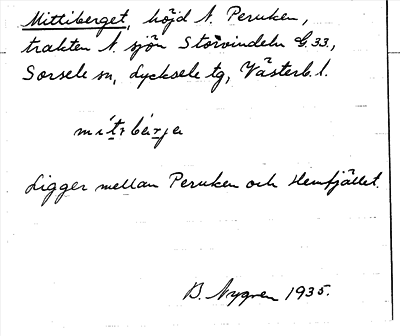 Mittiberget, höjd N. Peruken,
trakten N. sjön Storvindeln G.33.,
Sorsele sn, Lycksele tg, Västerb. l.
Ligger mellan Peruken och Hemfjället.
B. Nygren 1935.